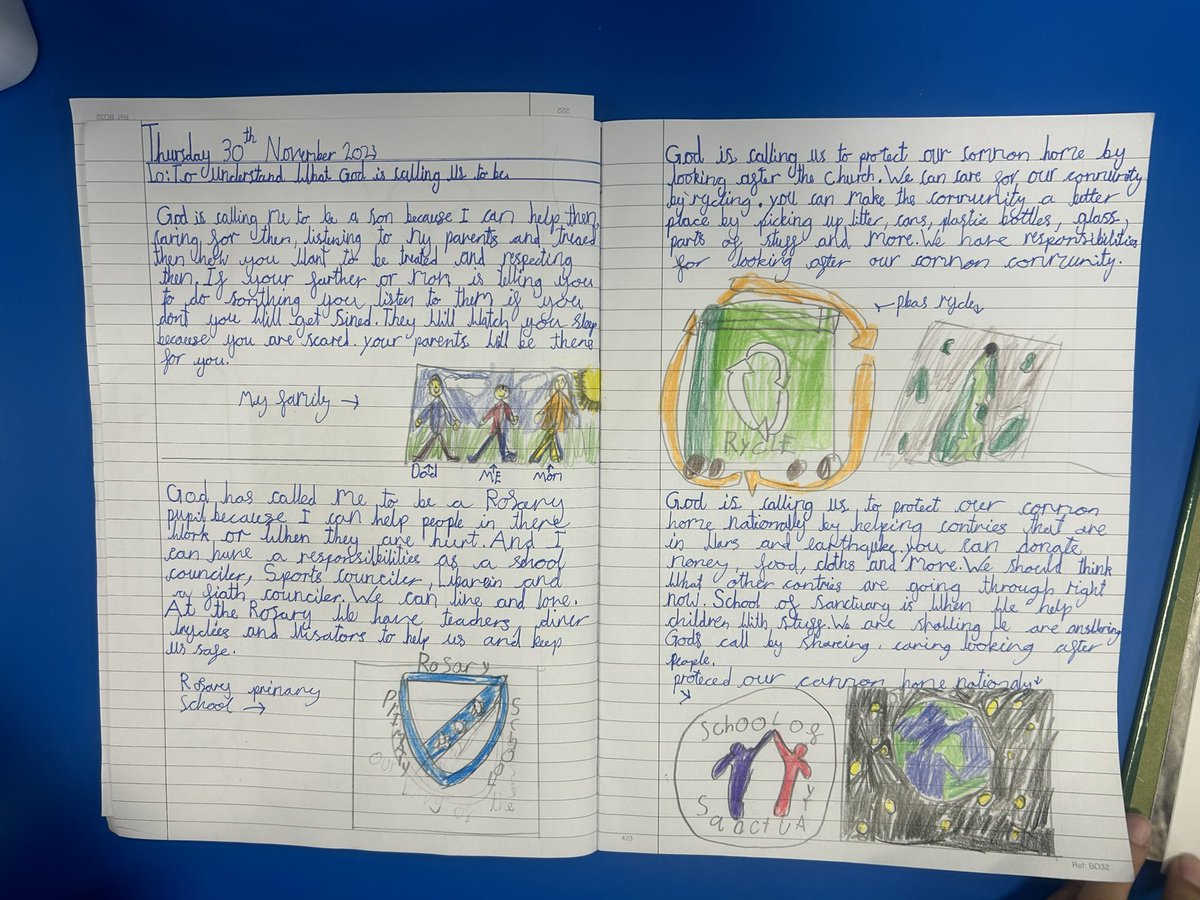 Thursday 30th November 2023
Lo: To understand What God is calling us to be.
God is calling me to be a son because I can help them,
caring for them, listening to my parents and treaed
them how you want to be treated and respecting
them. If your farther or mom is telling you
to do somthing you listen to them if you
dont you will get sined. They Will Watch you sleep
because you are scared. your parents will be there
for you.
My family →
Dad ME Mom
God has called me to be a Rosary
pupil because I can help people in there
work or when they are hurt. And I
can have a responsibilities as a school
counciler, Sports counciler, Libarein and
a fiath counciler. We can live and love.
At the Rosary We have teachers, diner
laydies and Visators to help us and keep
us safe.
Rosary primary
School →
Rosary
Primary
School
God is calling us to protect our common home by
looking after the church. We can care for our community
by rycling. you can make the community a better
place by picking up litter, cans, plastic bottles, glass,
parts of stuff and more. We have responsibilities
for looking after our common community.
← pleas rycle
RycLE
God is calling us to protect our common
home nationally by helping contries that are
in Wars and earthquke. you can donate
money, food, cloths and more. We should think
What other contries are going through right
now. School of sanctuary is when We help
children With stuff. We are We are answering
Gods call by sharing, caring looking after
people.
proteced our common home nationaly
SchooL of
SanctuAry
423
Ref: BO32
222
Ref: BO32